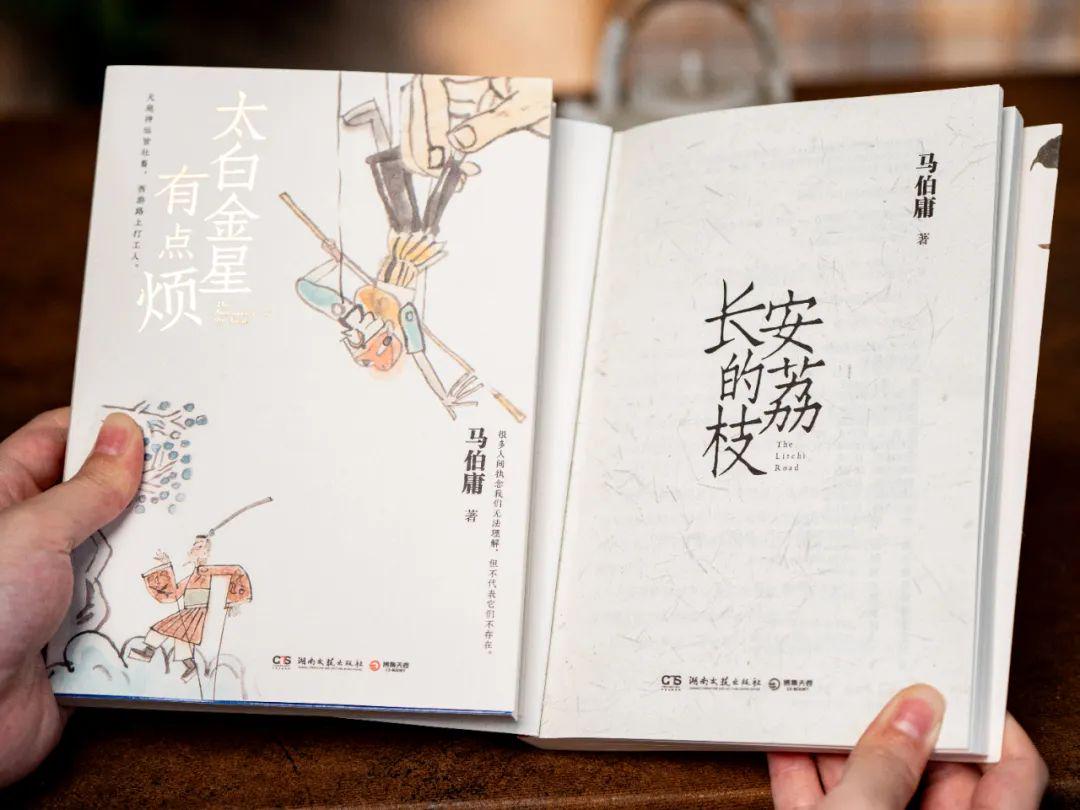 太白金星
有点烦
天庭神仙皆社畜，西游路上打工人。
马伯庸 著
很多人间执念我们无法理解，但不代表它们不存在。
CTS 湖南文艺出版社 博集天卷
CS-BOOKY
马伯庸 著
长安的荔枝
The
Litchi
Road
CTS 湖南文艺出版社 博集天卷
CS-BOOKY